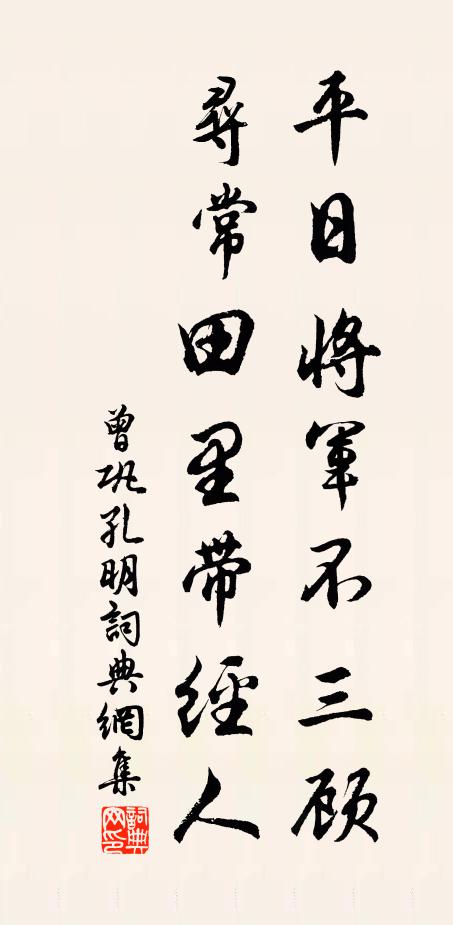 平日將軍不三顾
尋常田里带經人
曾巩孔明詞典網集
詞典网印